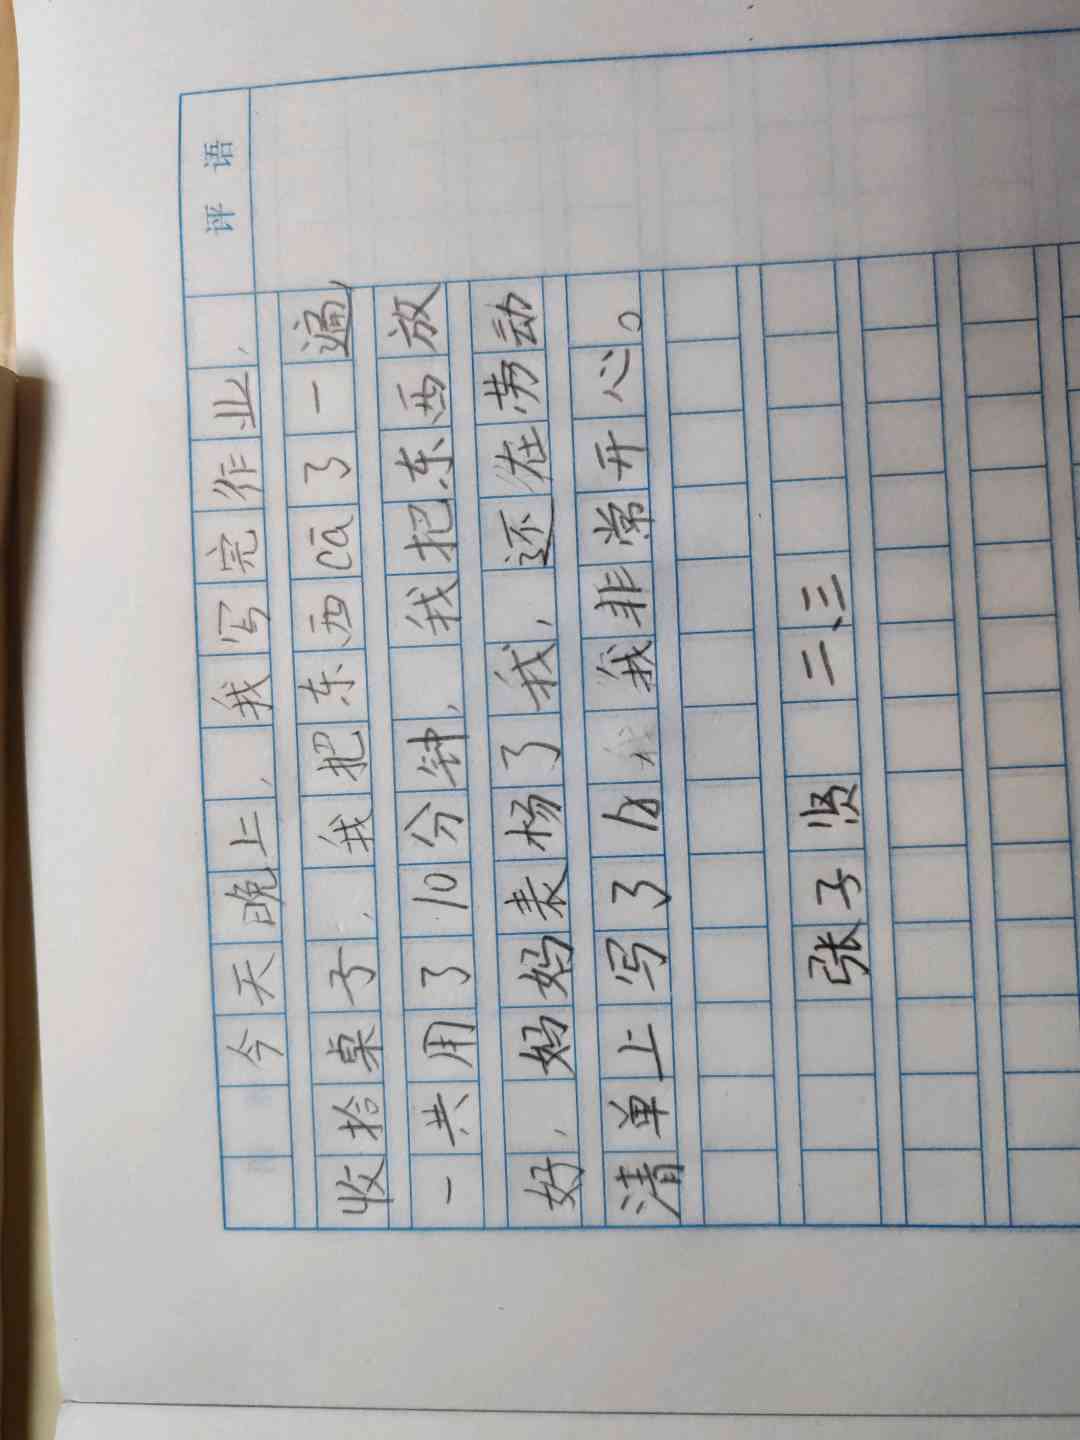 评语
今天晚上，我写完作业，
收拾桌子，我把东西cā了一遍，
一共用了10分钟，我把东西放
好，妈妈表杨了我，还在劳动
清单上写了我非常开心。
张子贤 二、三